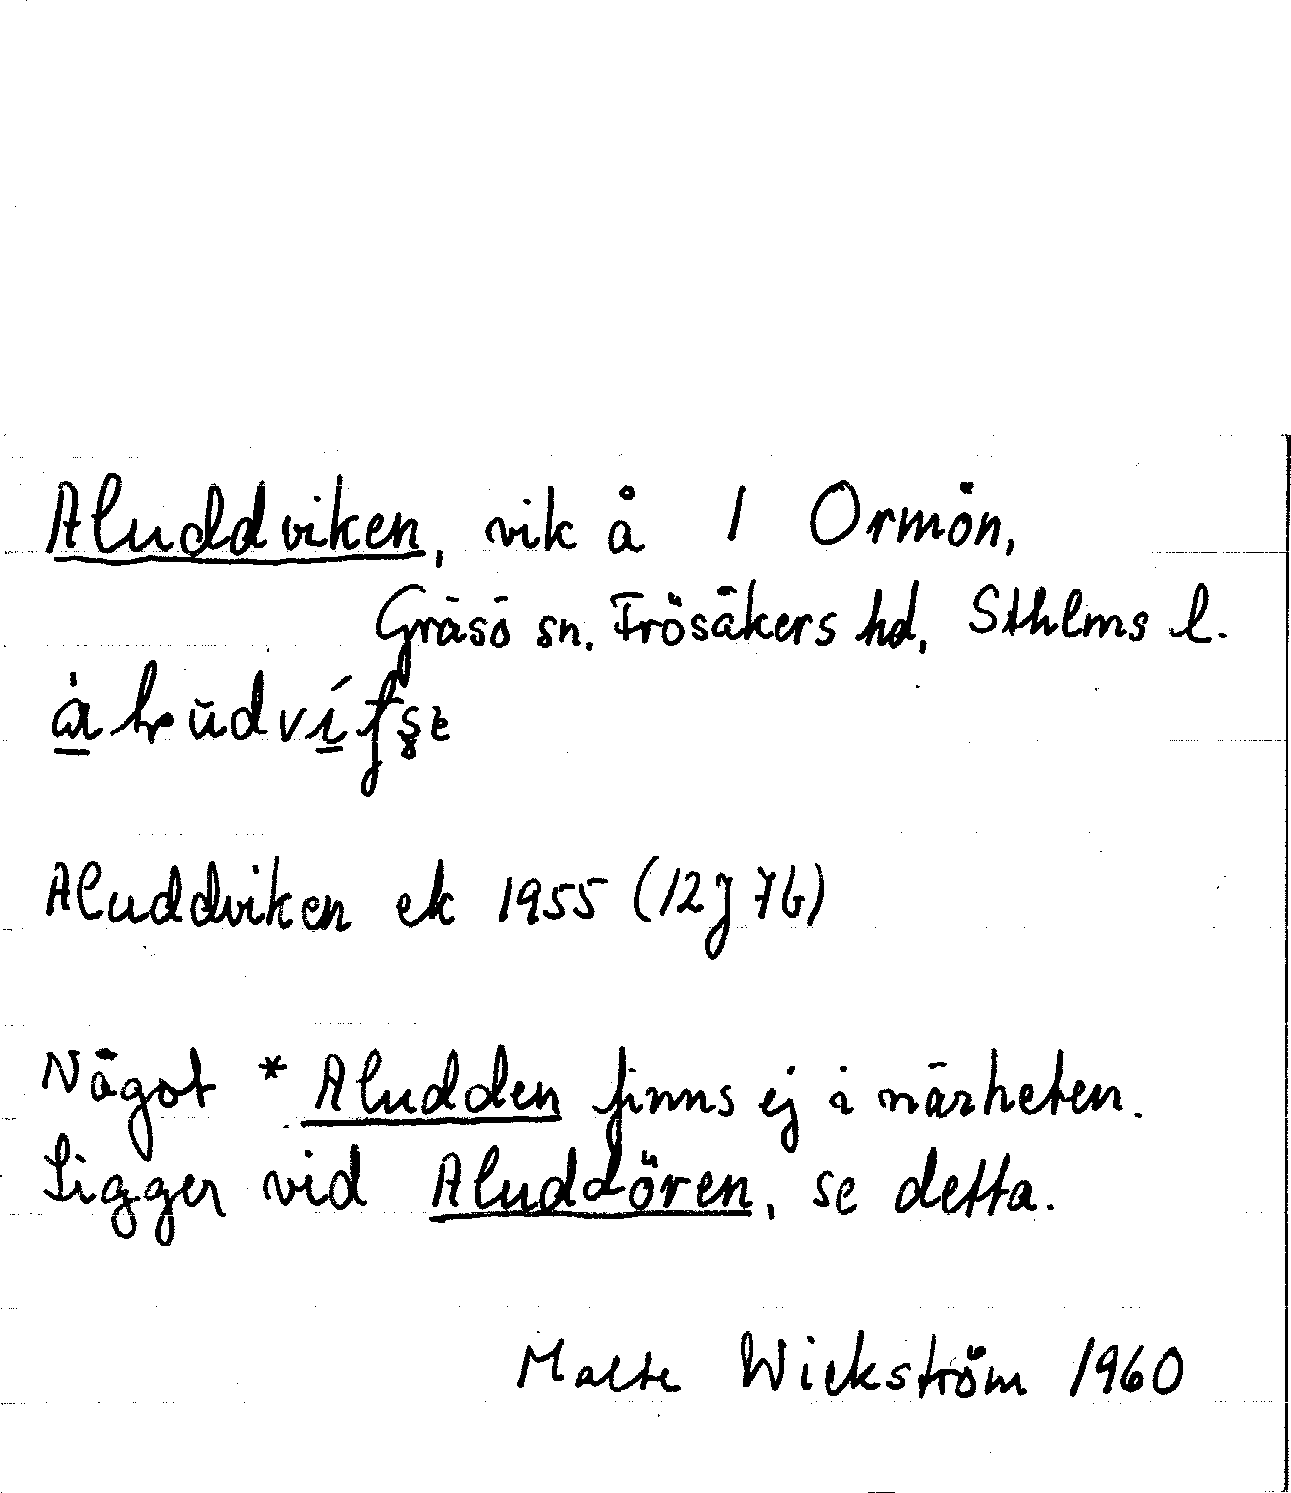 Aluddviken, vik å 1 Ormön,
Gräsö sn. Frösåkers hd, Sthlms l.
Aluddviken ek 1955 (12J 7b)
Något *Aludden finns ej i närheten.
Ligger vid Aluddören, se detta.
Malte Wickström 1960